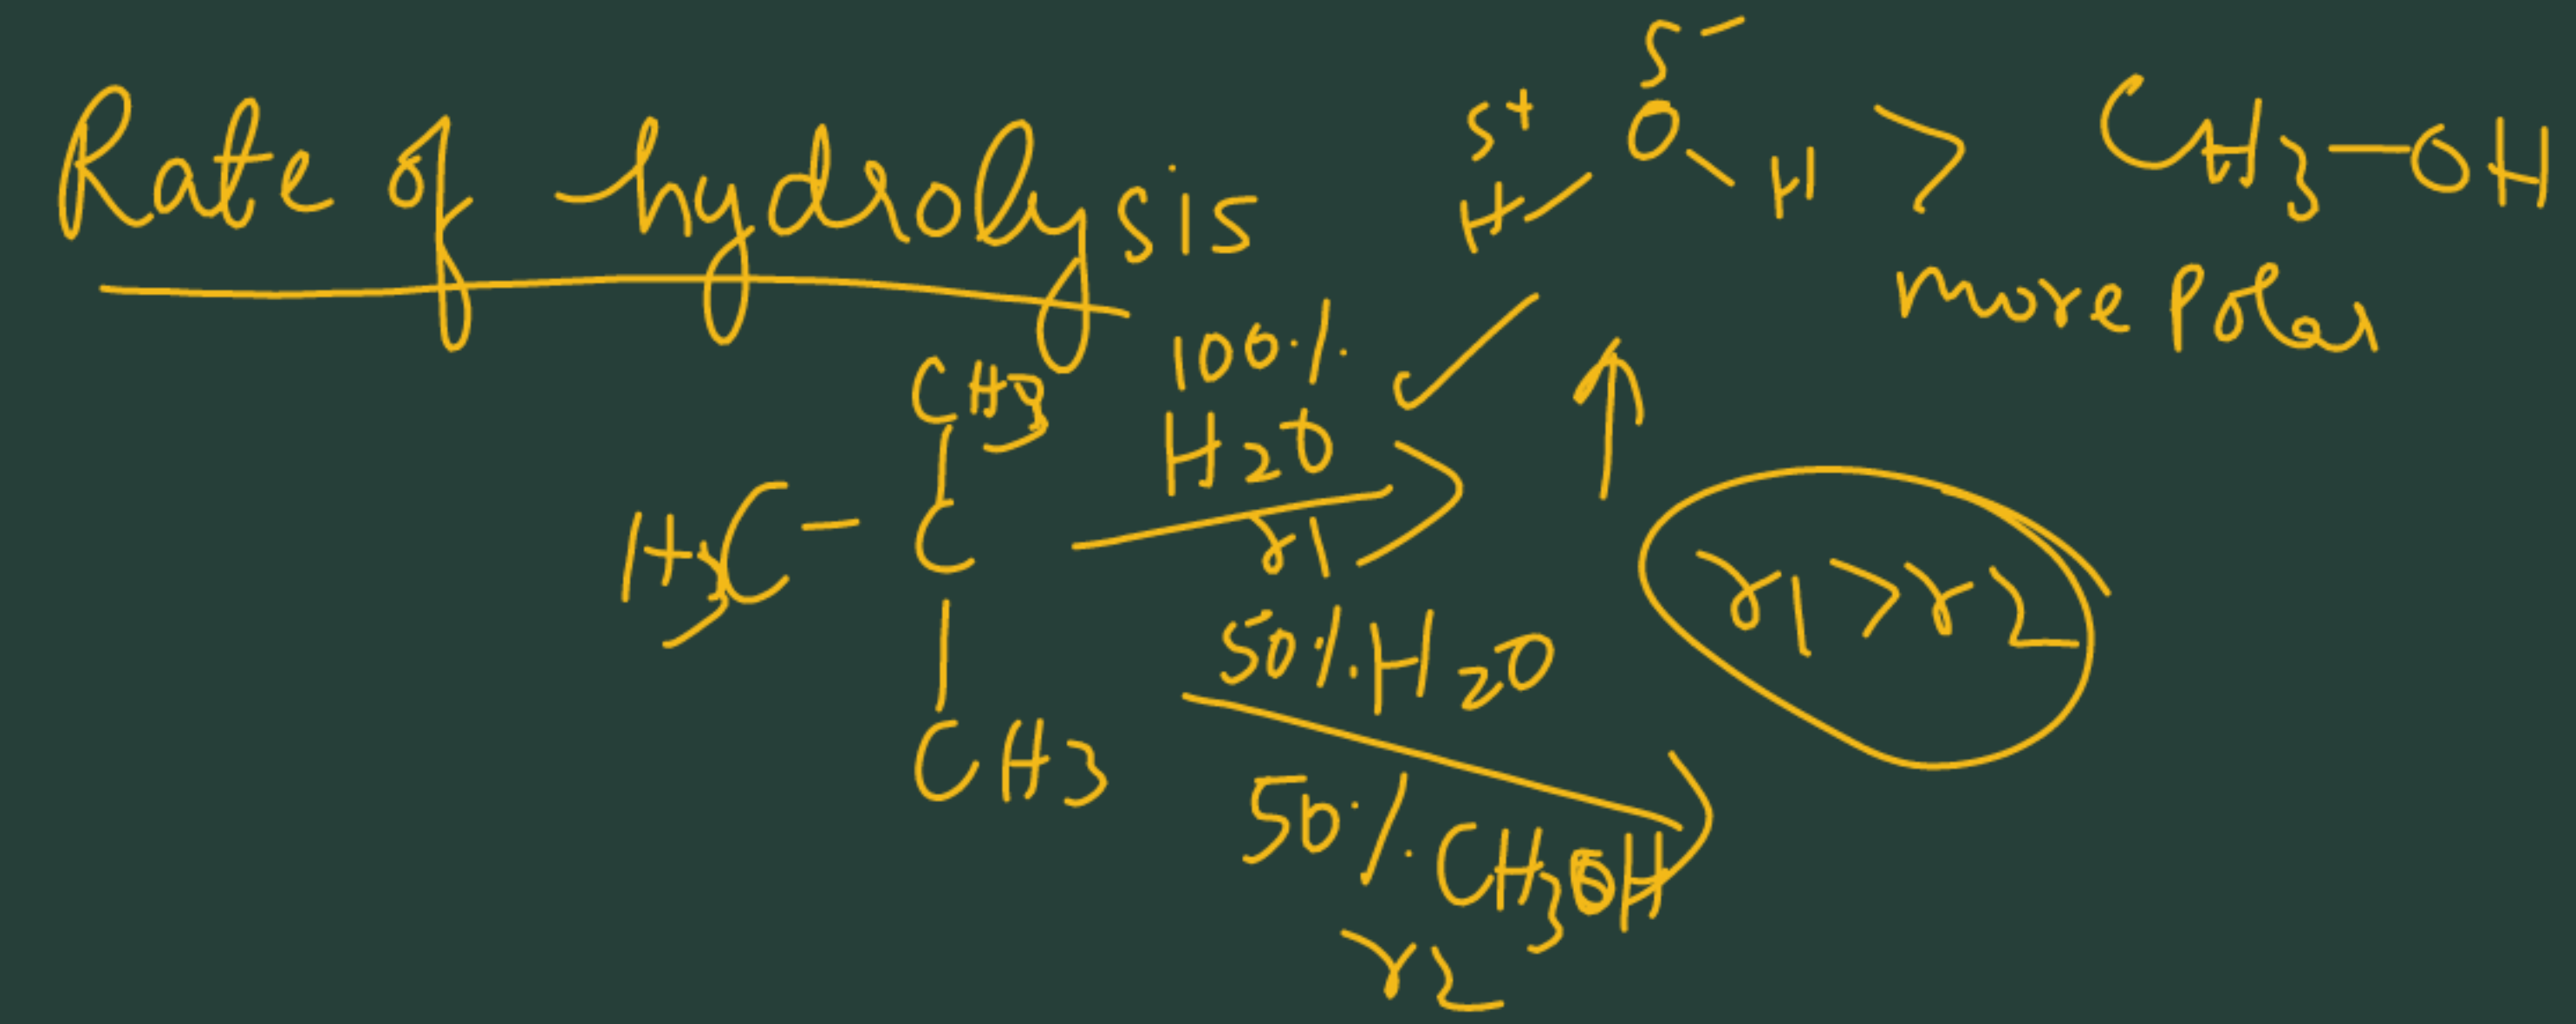 Rate of hydrolysis
δ+ δ-
H-O-H > CH3-OH
more polar
CH3
H3C-C
CH3
100%
H2O
r1
50% H2O
50% CH3OH
r2
r1>r2